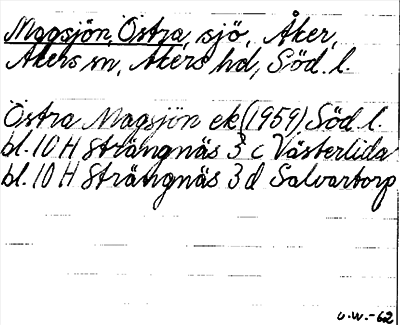 Magsjön, Östra, sjö, Åker,
Åkers sn, Åkers hd, Söd. l.
Östra Magsjön ek (1959) Söd l.
bl. 10 H Strängnäs 3 c Västerlida
bl. 10 H Strängnäs 3 d Salvartorp
U.W.-62